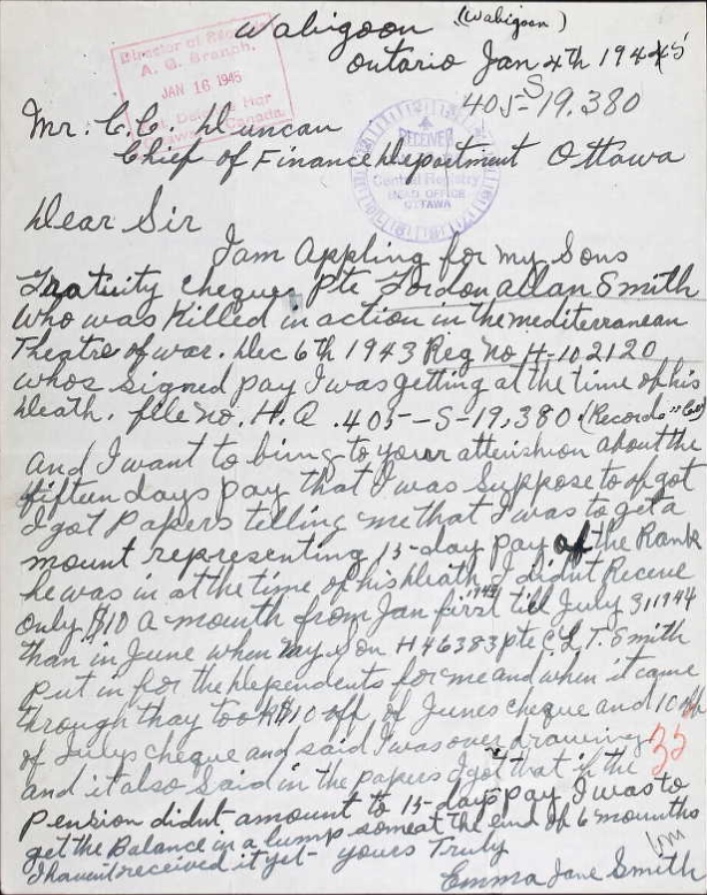 Wabigoon (Wabigoon)
Ontario Jan 4th 1945
Director of Records
A. G. Branch.
JAN 16 1945
Ottawa, Canada.
405-S-19.380
Mr. C.C. Duncan
Chief of Finance Department Ottawa
RECEIVER
Central Registry
HEAD OFFICE
OTTAWA
Dear Sir
I am Appling for my Sons
Gratuity cheque Pte Gordon allan Smith
who was Killed in action in the mediterranean
Theatre of war. Dec 6th 1943 Reg no H-102120
whos signed pay I was getting at the time of his
Death. file no. H.Q. 405-S-19,380 (Records
and I want to bring to your attenishion about the
fifteen days pay that I was Suppose to of got
I got Papers telling me that I was to get a
mount representing 15-day pay of the Rank
he was in at the time of his Death I didnt Receve
only $10 a mounth from Jan first 1944 till July 31 1944
than in June when my Son H46383 pte C.L.T. Smith
put in for the Dependents for me and when it came
through thay took $10 off of Junes cheque and 10 off
of Julys cheque and said I was over drawing
35
and it also Said in the papers I got that if the
Pension didnt amount to 15-days pay I was to
get the Balance in a lump some at the end of 6 mounths
I havent received it yet - yours Truly
Emma Jane Smith